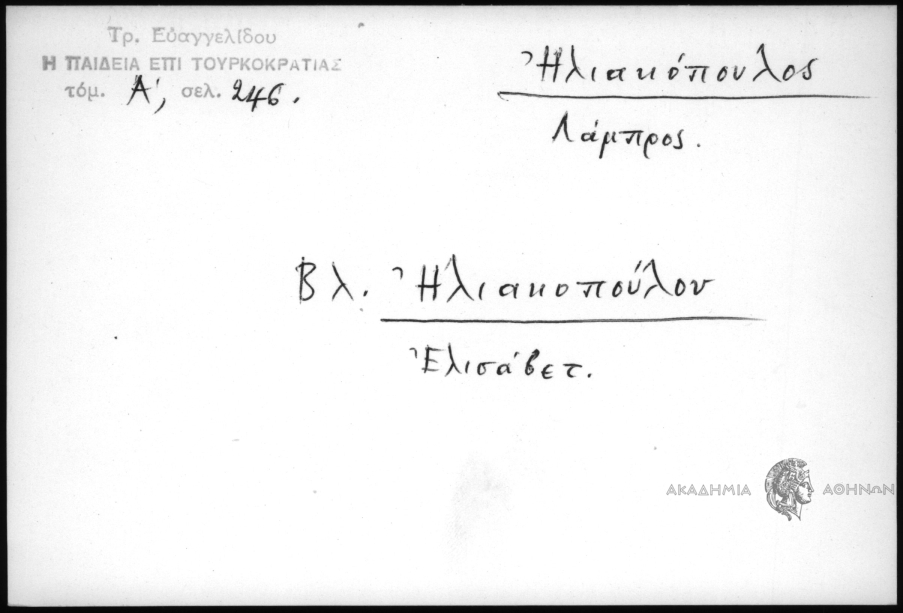 Τρ. Εὐαγγελίδου
Η ΠΑΙΔΕΙΑ ΕΠΙ ΤΟΥΡΚΟΚΡΑΤΙΑΣ
τόμ. Α', σελ. 246.
Ἠλιακόπουλος
Λάμπρος.
Βλ. Ἠλιακοπούλου
Ἐλισάβετ.
ΑΚΑΔΗΜΙΑ ΑΘΗΝΩΝ